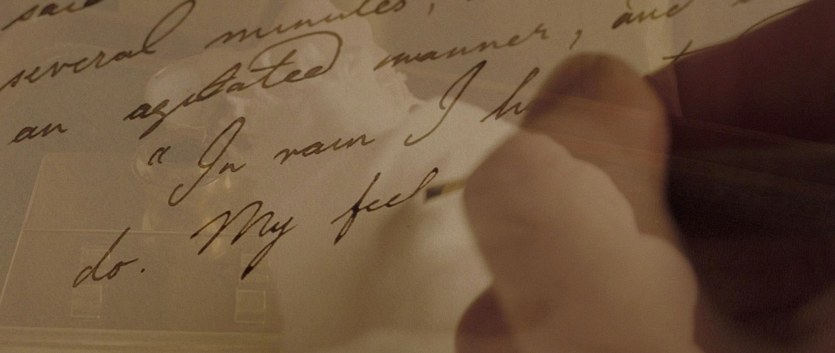 said
several minutes,
an agitated manner, and
"In vain I h
do. My feel